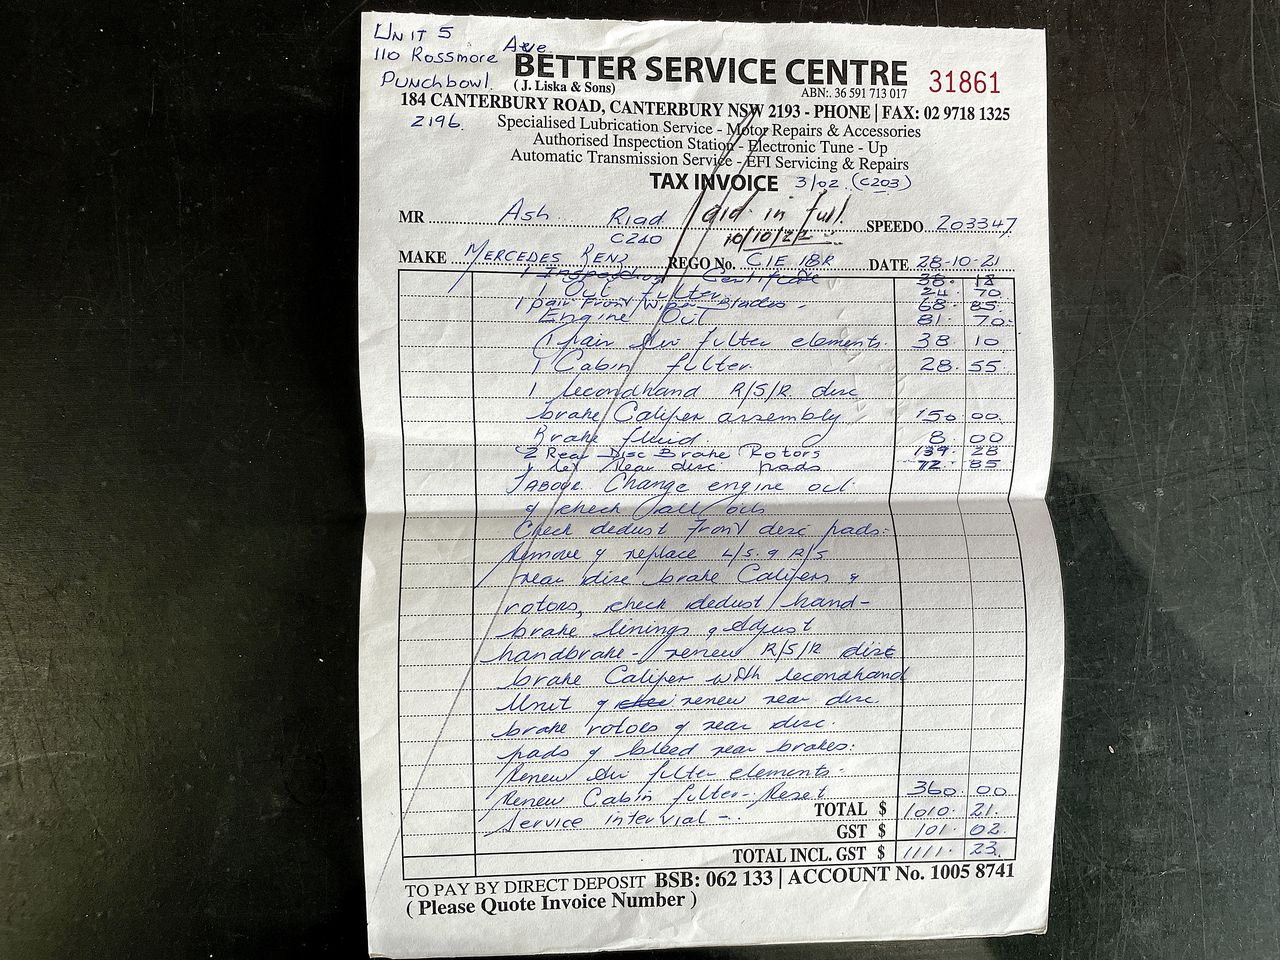 UNIT 5
110 Rossmore Ave
Punchbowl.
2196.
BETTER SERVICE CENTRE
31861
(J. Liska & Sons)
ABN:. 36 591 713 017
184 CANTERBURY ROAD, CANTERBURY NSW 2193 - PHONE | FAX: 02 9718 1325
Specialised Lubrication Service - Motor Repairs & Accessories
Authorised Inspection Station - Electronic Tune - Up
Automatic Transmission Service - EFI Servicing & Repairs
TAX INVOICE 3/02 (C203)
MR Ash Riad Paid in full. SPEEDO 203347
C240 10/10/22
MAKE MERCEDES BENZ REGO No. CIE 18R DATE 28-10-21
1 Inspection Certificate 38. 18
1 Oil filter 24 70
1 pair Front Wiper Blades - 68 85
Engine Oil 81. 70
1 pair air filter elements. 38 10
1 Cabin filter. 28. 55
1 secondhand R/S/R. disc
brake Caliper assembly 150 00.
Brake fluid. 8. 00
2 Rear Disc Brake Rotors 139. 28
1 set Rear disc pads 72. 85
LABOUR Change engine oil
& check all oils
Check dedust Front disc pads.
Remove & replace L/S. & R/S
rear disc brake Calipers &
rotors, check dedust hand-
brake linings & adjust
handbrake - renew R/S/R disc
brake Caliper with secondhand
Unit & renew rear disc.
brake rotors & rear disc.
pads & bleed rear brakes.
Renew air filter elements.
Renew Cabin filter - Reset 360. 00
Service interval -. TOTAL $ 1010. 21.
GST $ 101. 02
TOTAL INCL. GST $ 1111. 23.
TO PAY BY DIRECT DEPOSIT BSB: 062 133 | ACCOUNT No. 1005 8741
( Please Quote Invoice Number )